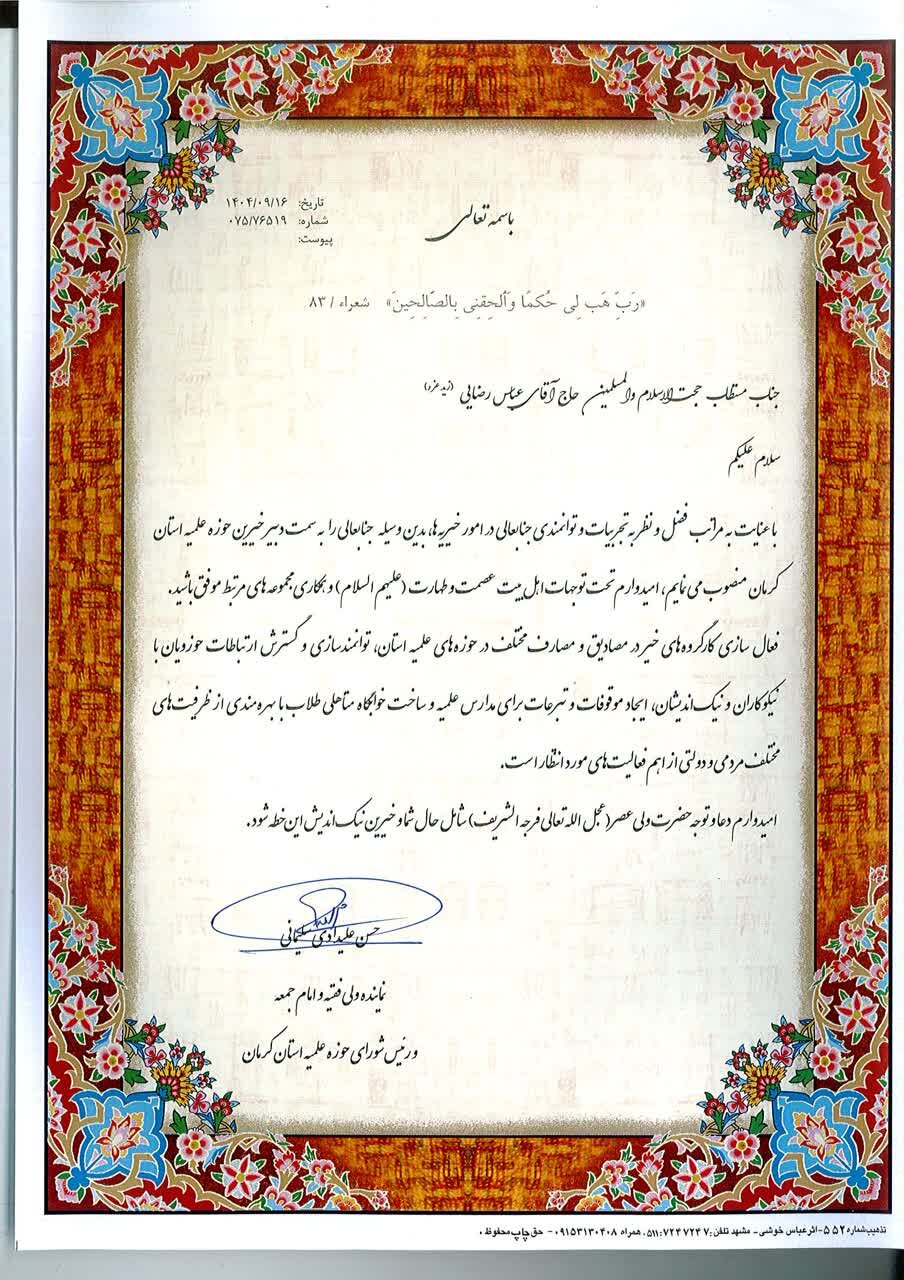 باسمه تعالی
تاریخ: ۱۴۰۴/۰۹/۱۶
شماره: ۰۷۵/۷۶۵۱۹
پیوست:
«رَبِّ هَب لِی حُکمًا وَأَلحِقنِی بِالصَّالِحِینَ» شعراء / ۸۳
جناب مستطاب حجت‌الاسلام والمسلمین حاج آقای عباس رضایی (زید عزه)
سلام علیکم
با عنایت به مراتب فضل و نظر به تجربیات و توانمندی جنابعالی در امور خیریه‌ها، بدین وسیله جنابعالی را به سمت دبیر خیرین حوزه علمیه استان
کرمان منصوب می نمایم، امیدوارم تحت توجهات اهل بیت عصمت و طهارت (علیهم السلام) و همکاری مجموعه های مرتبط موفق باشید.
فعال سازی کارگروه‌های خیر در مصادیق و مصارف مختلف در حوزه های علمیه استان، توانمندسازی و گسترش ارتباطات حوزویان با
نیکوکاران و نیک اندیشان، ایجاد موقوفات و تبرعات برای مدارس علمیه و ساخت خوابگاه متأهلی طلاب با بهره مندی از ظرفیت‌های
مختلف مردمی و دولتی از اهم فعالیت‌های مورد انتظار است.
امیدوارم دعا و توجه حضرت ولی عصر(عجل الله تعالی فرجه الشریف) شامل حال شما و خیرین نیک اندیش این خطه شود.
حسن علیدادی سلیمانی
نماینده ولی فقیه و امام جمعه
و رئیس شورای حوزه علمیه استان کرمان
تذهیب شماره ۵۵۲-اثر عباس خوشی - مشهد تلفن: ۷۲۴۷۲۴۷-۰۵۱۱ همراه ۰۹۱۵۳۱۳۰۴۰۸ - حق چاپ محفوظ.